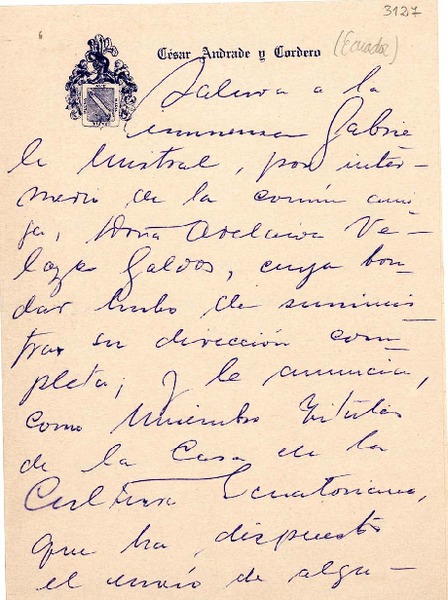 3127
César Andrade y Cordero (Ecuador)
Saluda a la
inmensa Gabrie
la Mistral, por inter-
medio de la común ami-
ga, Doña Adelaida Ve-
lazco Galdos, cuya bon-
dad hubo de suminis
trar su dirección com-
pleta; y le anuncia,
como Miembro Titular
de la Casa de la
Cultura Ecuatoriana,
que ha dispuesto
el envío de algu-